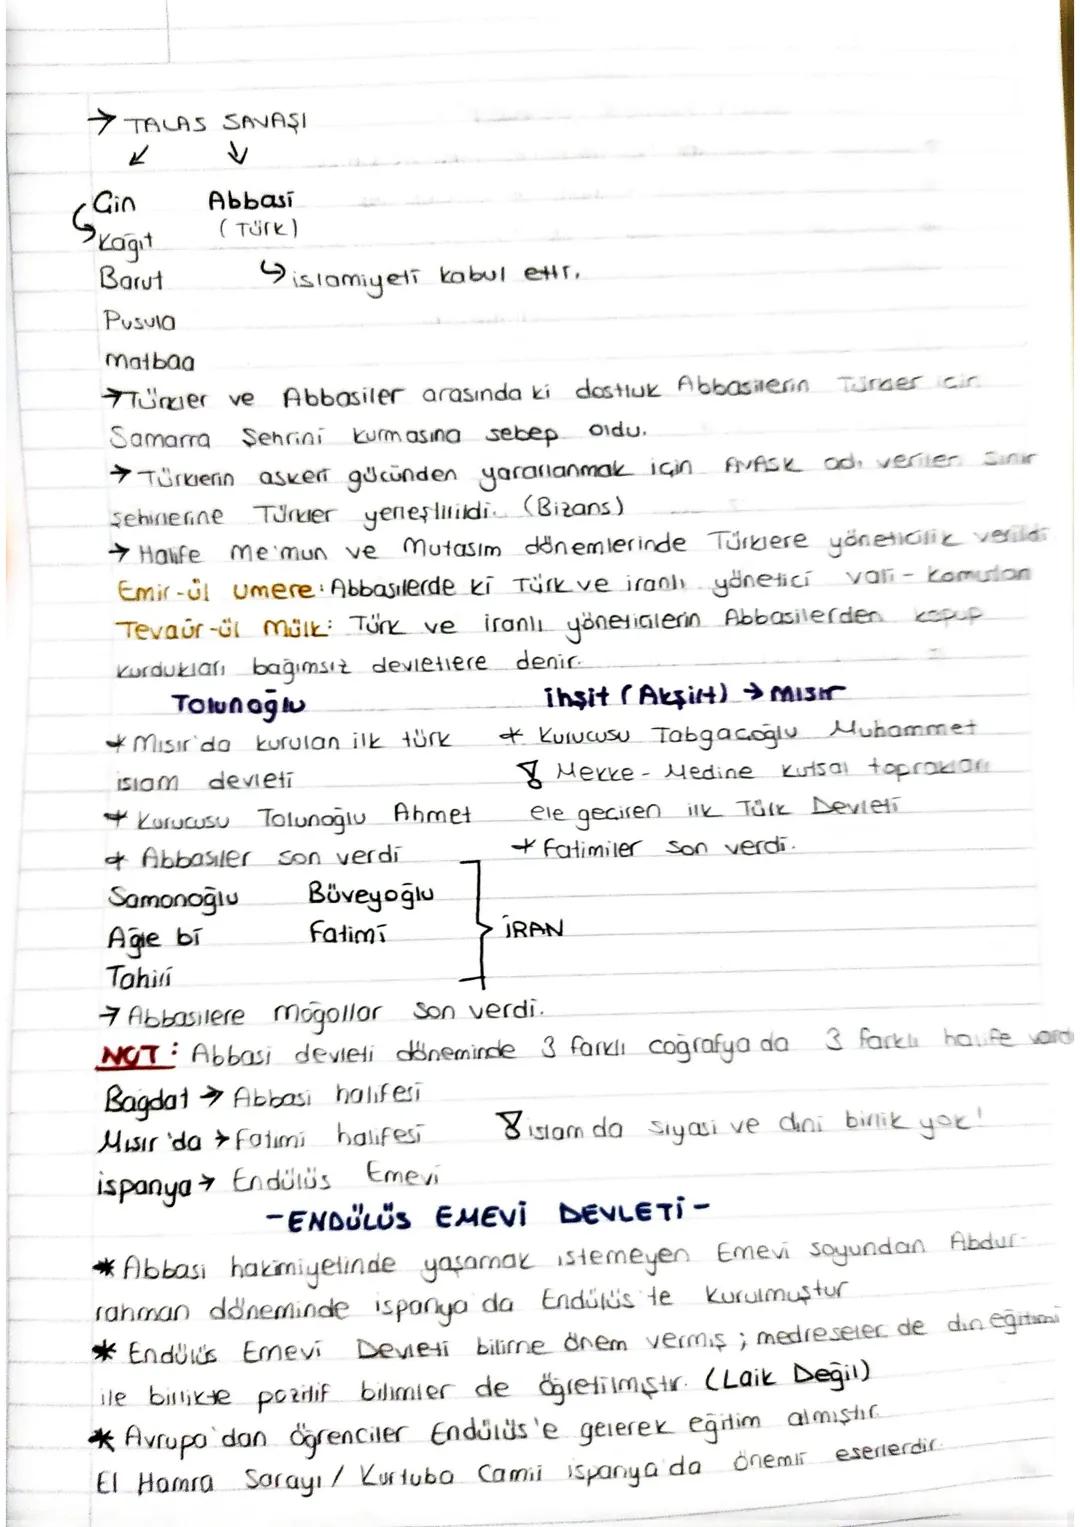 → TALAS SAVAŞI
↙ ↓
Çin Abbasi
(Türk)
Kağıt
Barut ↳ islamiyeti kabul ettr.
Pusula
Matbaa
→ Türkler ve Abbasiler arasında ki dostluk Abbasilerin Türkler için
Samarra Şehrini kurmasına sebep oldu.
→ Türklerin askeri gücünden yararlanmak için AVASK adı verilen sınır
şehirlerine Türkler yerleştirildi. (Bizans)
→ Halife Me'mun ve Mutasım dönemlerinde Türklere yöneticilik verildi
Emir-ül Umere: Abbasilerde ki Türk ve iranlı yönetici vali - komutan
Tevaür-ül Mülk: Türk ve iranlı yöneticilerin Abbasilerden kopup
kurdukları bağımsız devletlere denir.
Tolunoğlu ihşit (Akşit) → Mısır
* Mısır'da kurulan ilk türk * Kurucusu Tabgaçoğlu Muhammet
islam devleti Mekke - Medine kutsal toprakları
* Kurucusu Tolunoğlu Ahmet ele geçiren ilk Türk Devleti
* Abbasiler son verdi * Fatimiler son verdi.
Samonoğlu Büveyoğlu
Ağle bi Fatimi } İRAN
Tahiri
→ Abbasilere Moğollar son verdi.
NOT: Abbasi devleti döneminde 3 farklı coğrafya da 3 farklı halife vardı
Bağdat → Abbasi halifesi
Mısır'da → Fatimi halifesi islam da siyasi ve dini birlik yok!
ispanya → Endülüs Emevi
- ENDÜLÜS EMEVİ DEVLETİ -
* Abbasi hakimiyetinde yaşamak istemeyen Emevi soyundan Abdur-
rahman döneminde ispanya'da Endülüs'te kurulmuştur
* Endülüs Emevi Devleti bilime önem vermiş ; medreseler de din eğitimi
ile birlikte pozitif bilimler de öğretilmiştir. (Laik Değil)
* Avrupa'dan öğrenciler Endülüs'e gelerek eğitim almıştır.
El Hamra Sarayı / Kurtuba Camii ispanya'da önemli eserlerdir.